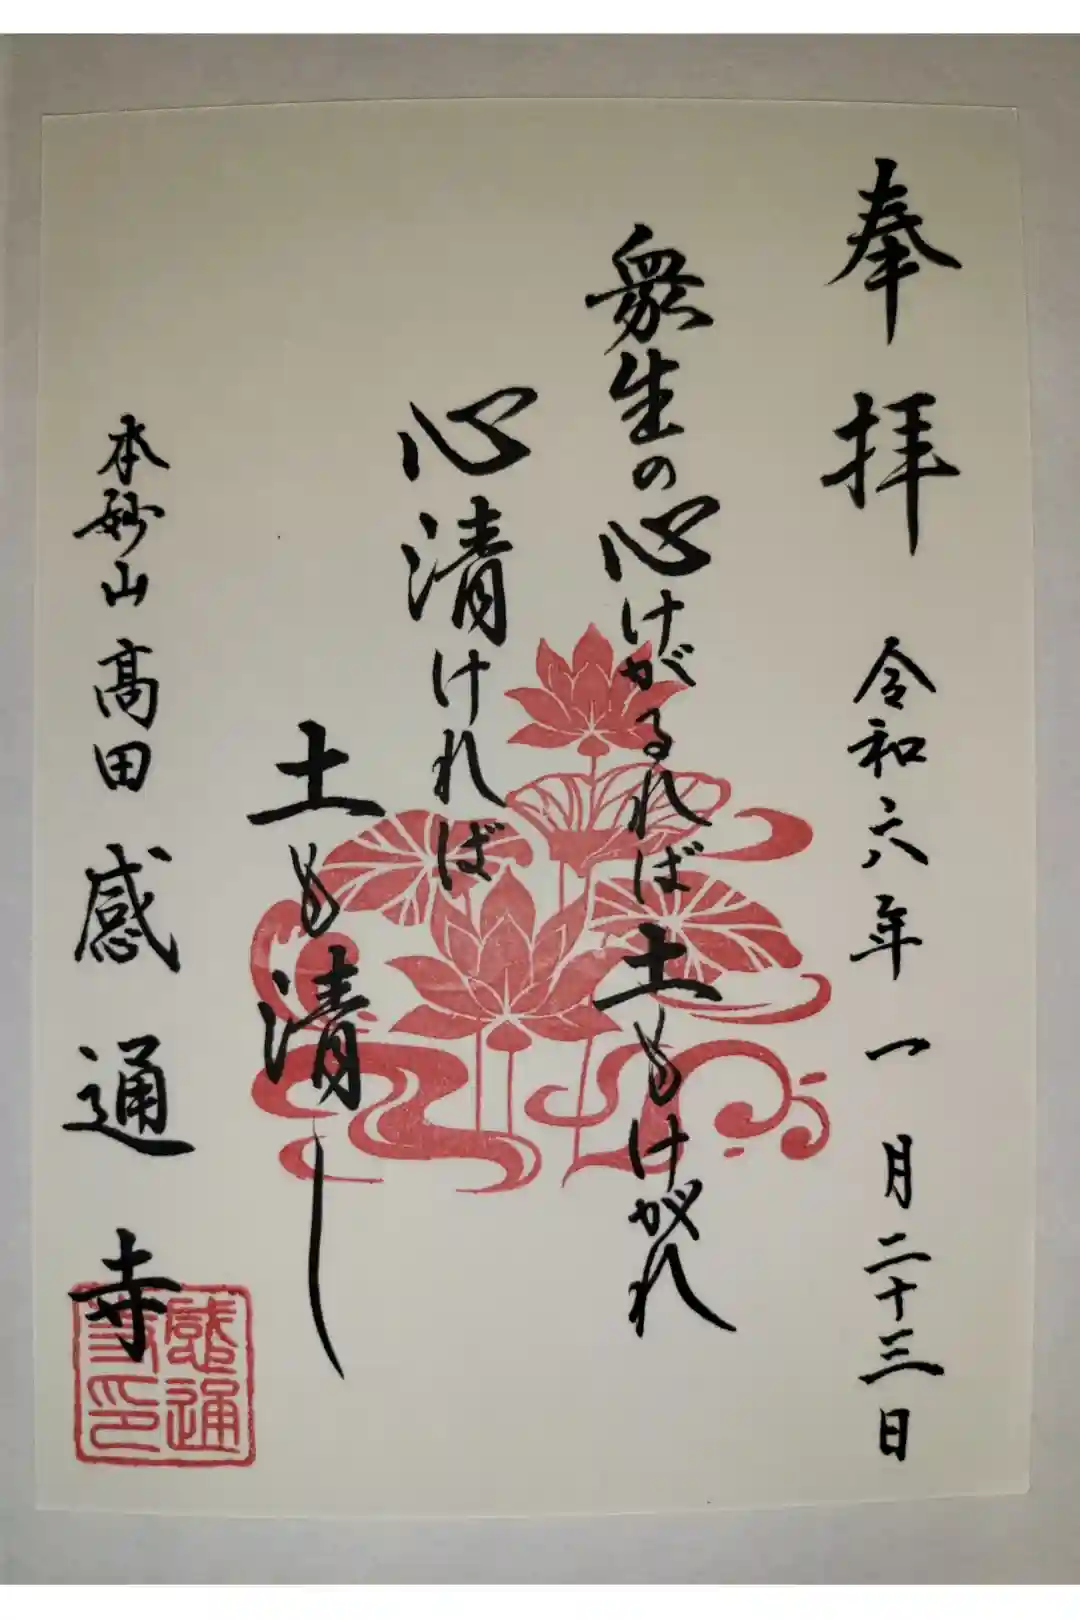 奉拝 令和六年一月二十三日
衆生の心けがるれば土もけがれ
心清ければ
土も清し
本妙山高田感通寺
感通
寺印